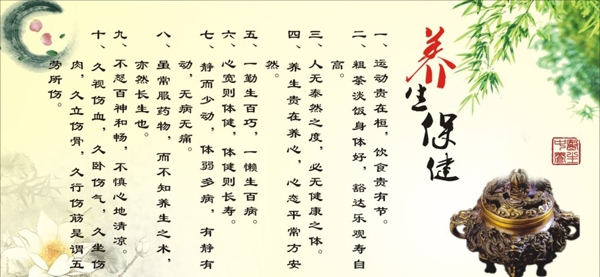 养生保健
一、运动贵在桓，饮食贵有节。
二、粗茶淡饭身体好，豁达乐观寿自
高。
三、人无泰然之度，必无健康之体。
四、养生贵在养心，心态平常方安
然。
五、一勤生百巧，一懒生百病。
六、心宽则体健，体健则长寿。
七、静而少动，体弱多病，有静有
动，无病无痛。
八、虽常服药物，而不知养生之术，
亦然长生也。
九、不怒百神和畅，不慎心地清凉。
十、久视伤血，久卧伤气，久坐伤
肉，久立伤骨，久行伤筋是谓五
劳所伤。